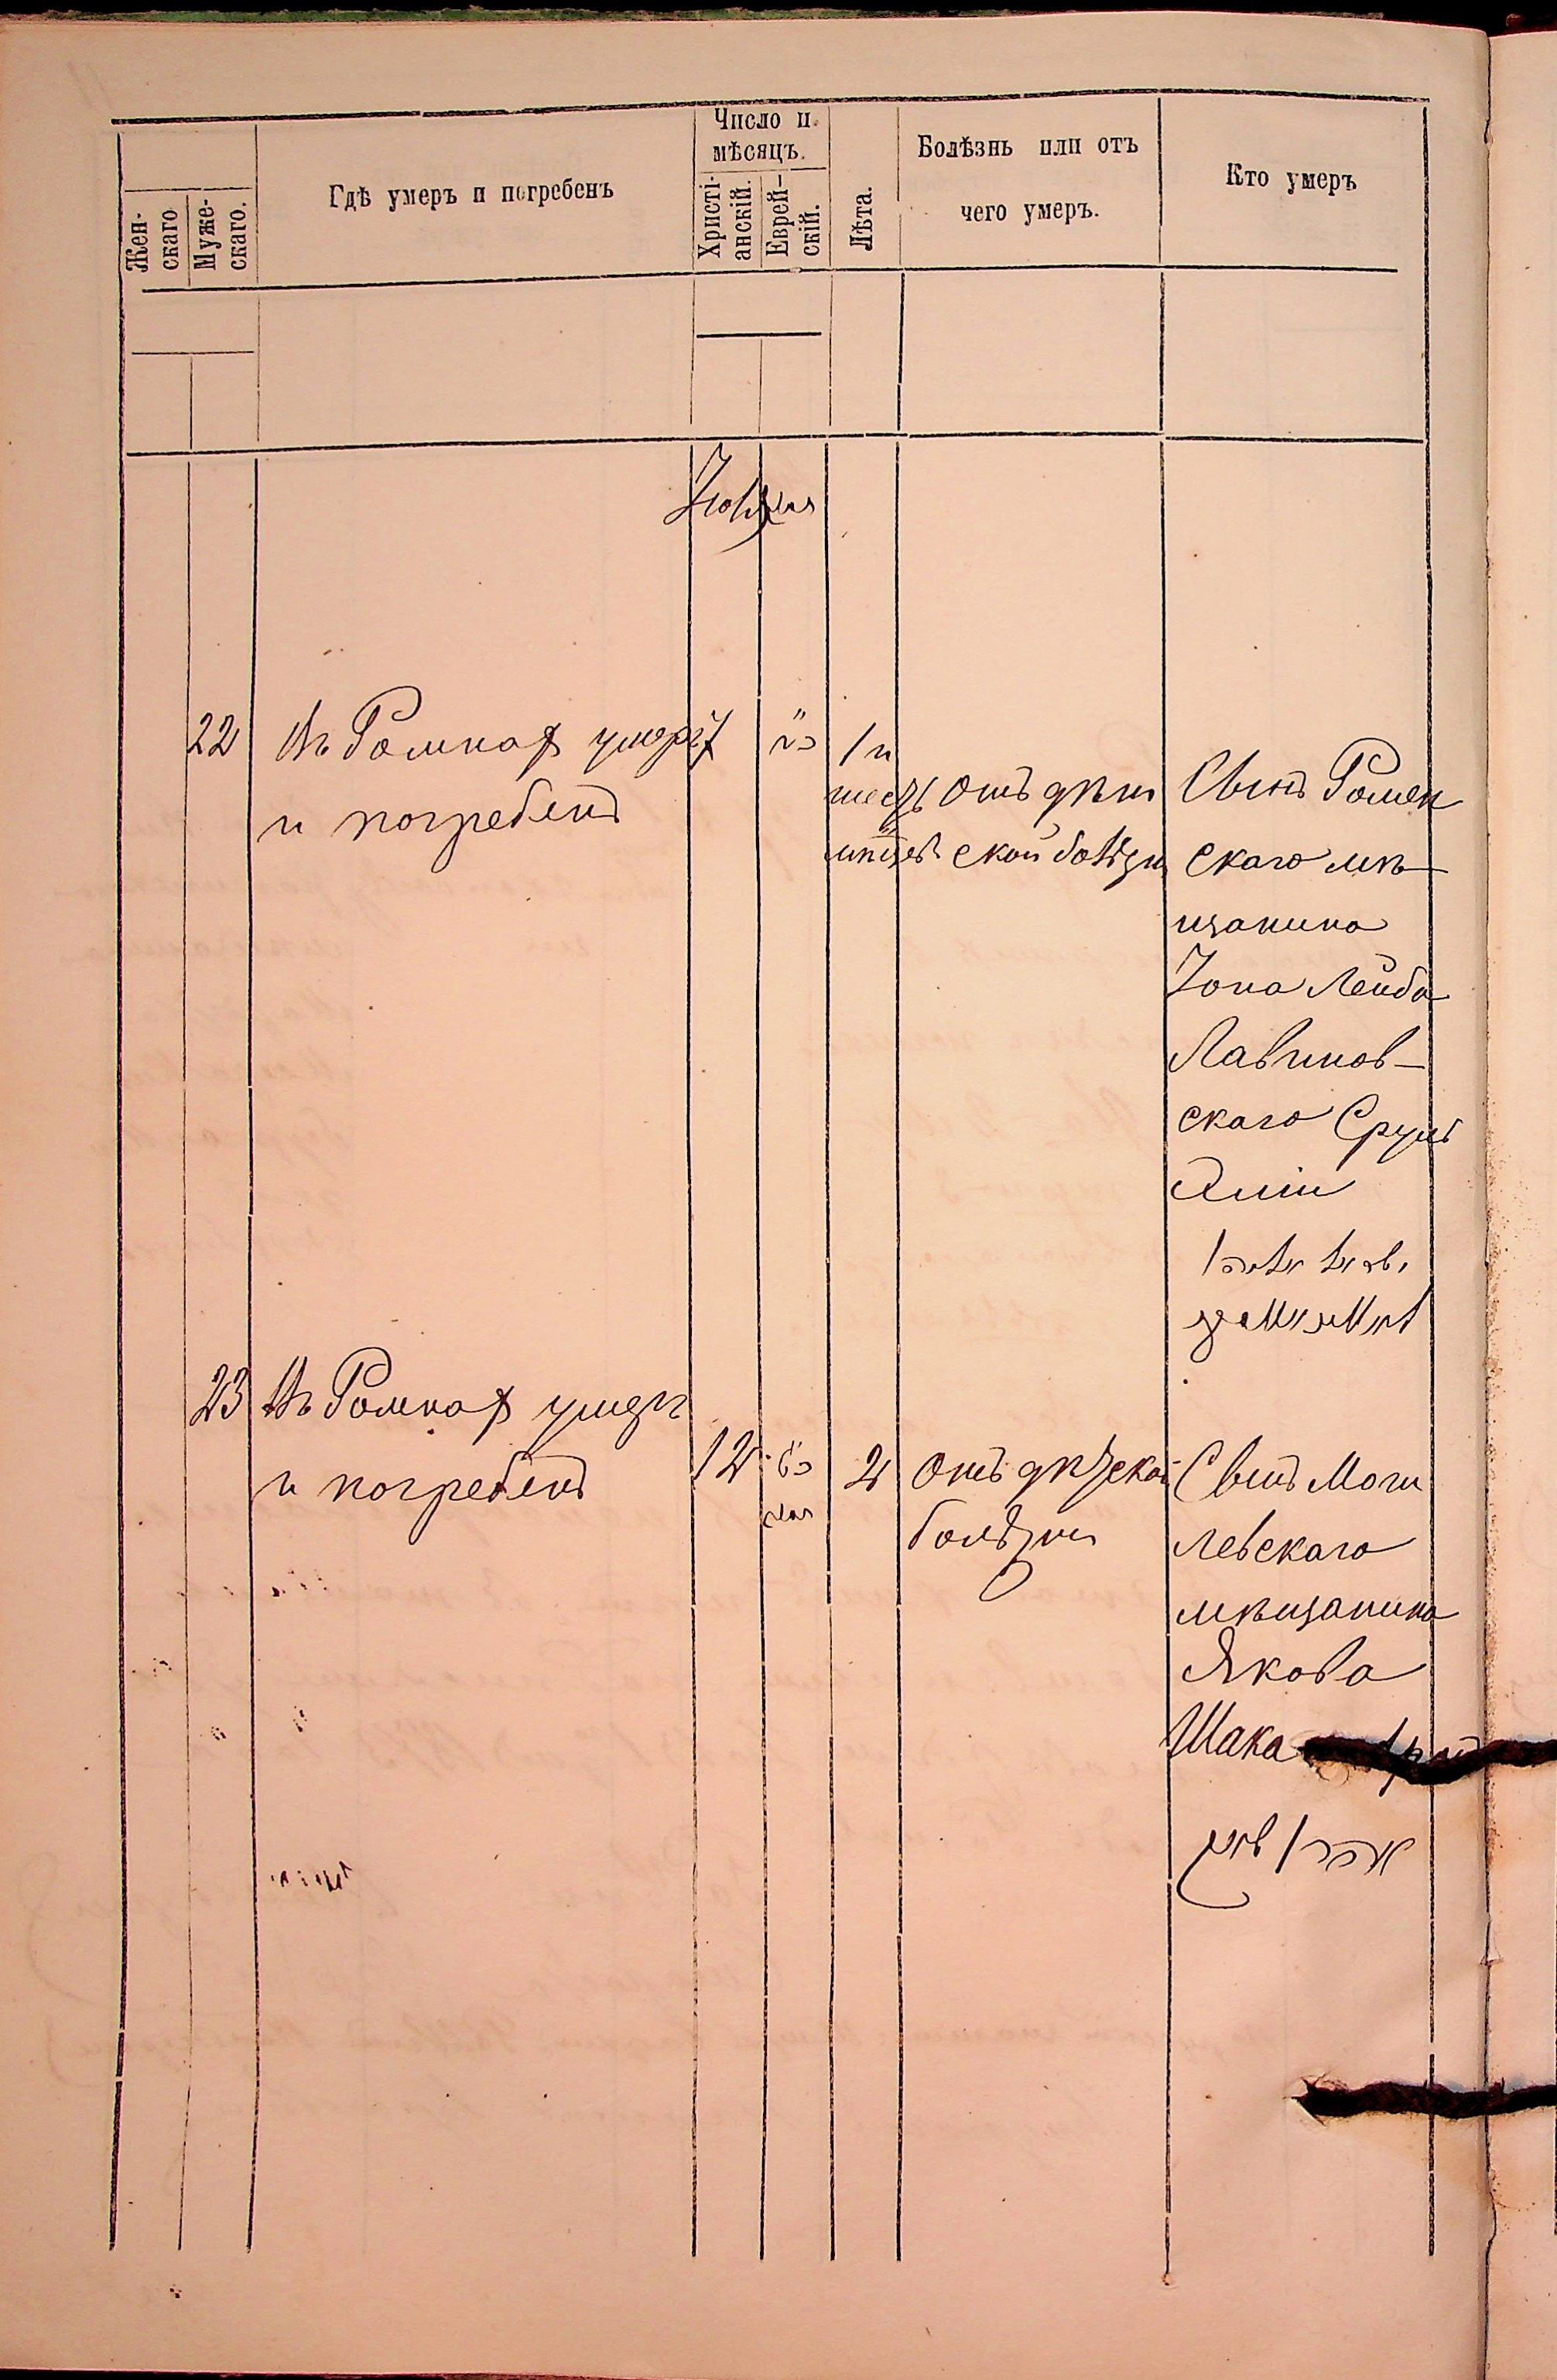 Жен-
скаго
Муже-
скаго.
Гдѣ умеръ и погребенъ
Число и
мѣсяцъ.
Христі-
анскій.
Еврей-
скій.
Лѣта.
Болѣзнь или отъ
чего умеръ.
Кто умеръ
Іюль
22
Въ Ромнах умеръ
и погребенъ
7
1 и
шесть
мѣсяцев
отъ дѣт
ской болѣзни
Сынъ Ромен
скаго мѣ-
щанина
Іона Лейба
Лавинов-
скаго Сруль
23
Въ Ромнах умеръ
и погребенъ
12
2
отъ дѣтской
болѣзни
Сынъ Моги
левскаго
мѣщанина
Якова
Шака